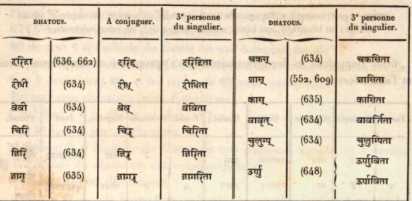 DHATOUS. A conjuguer. 3e personne du singulier. DHATOUS. 3e personne du singulier.
दरिद्रा (636, 662) दरिद्र् दरिद्रिता चकास् (634) चकासिता
दीधी (634) दीध् दीधिता शास् (552, 609) शासिता
वेवी (634) वेव् वेविता कास् (635) कासिता
चिरि (634) चिर् चिरिता वावृत् (634) वावर्तिता
जिरि (634) जिर् जिरिता चुलुम्प् (634) चुलुम्पिता
जागृ (635) जागर् जागरिता ऊर्णु (648) ऊर्णुविता
ऊर्णविता